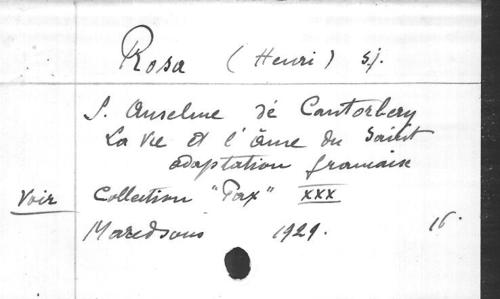 Rosa (Henri) sj.
S. Anselme de Cantorbery
La vie et l'âme du Saint
adaptation française
Voir Collection "Pax" XXX
Maredsous 1929. 16.